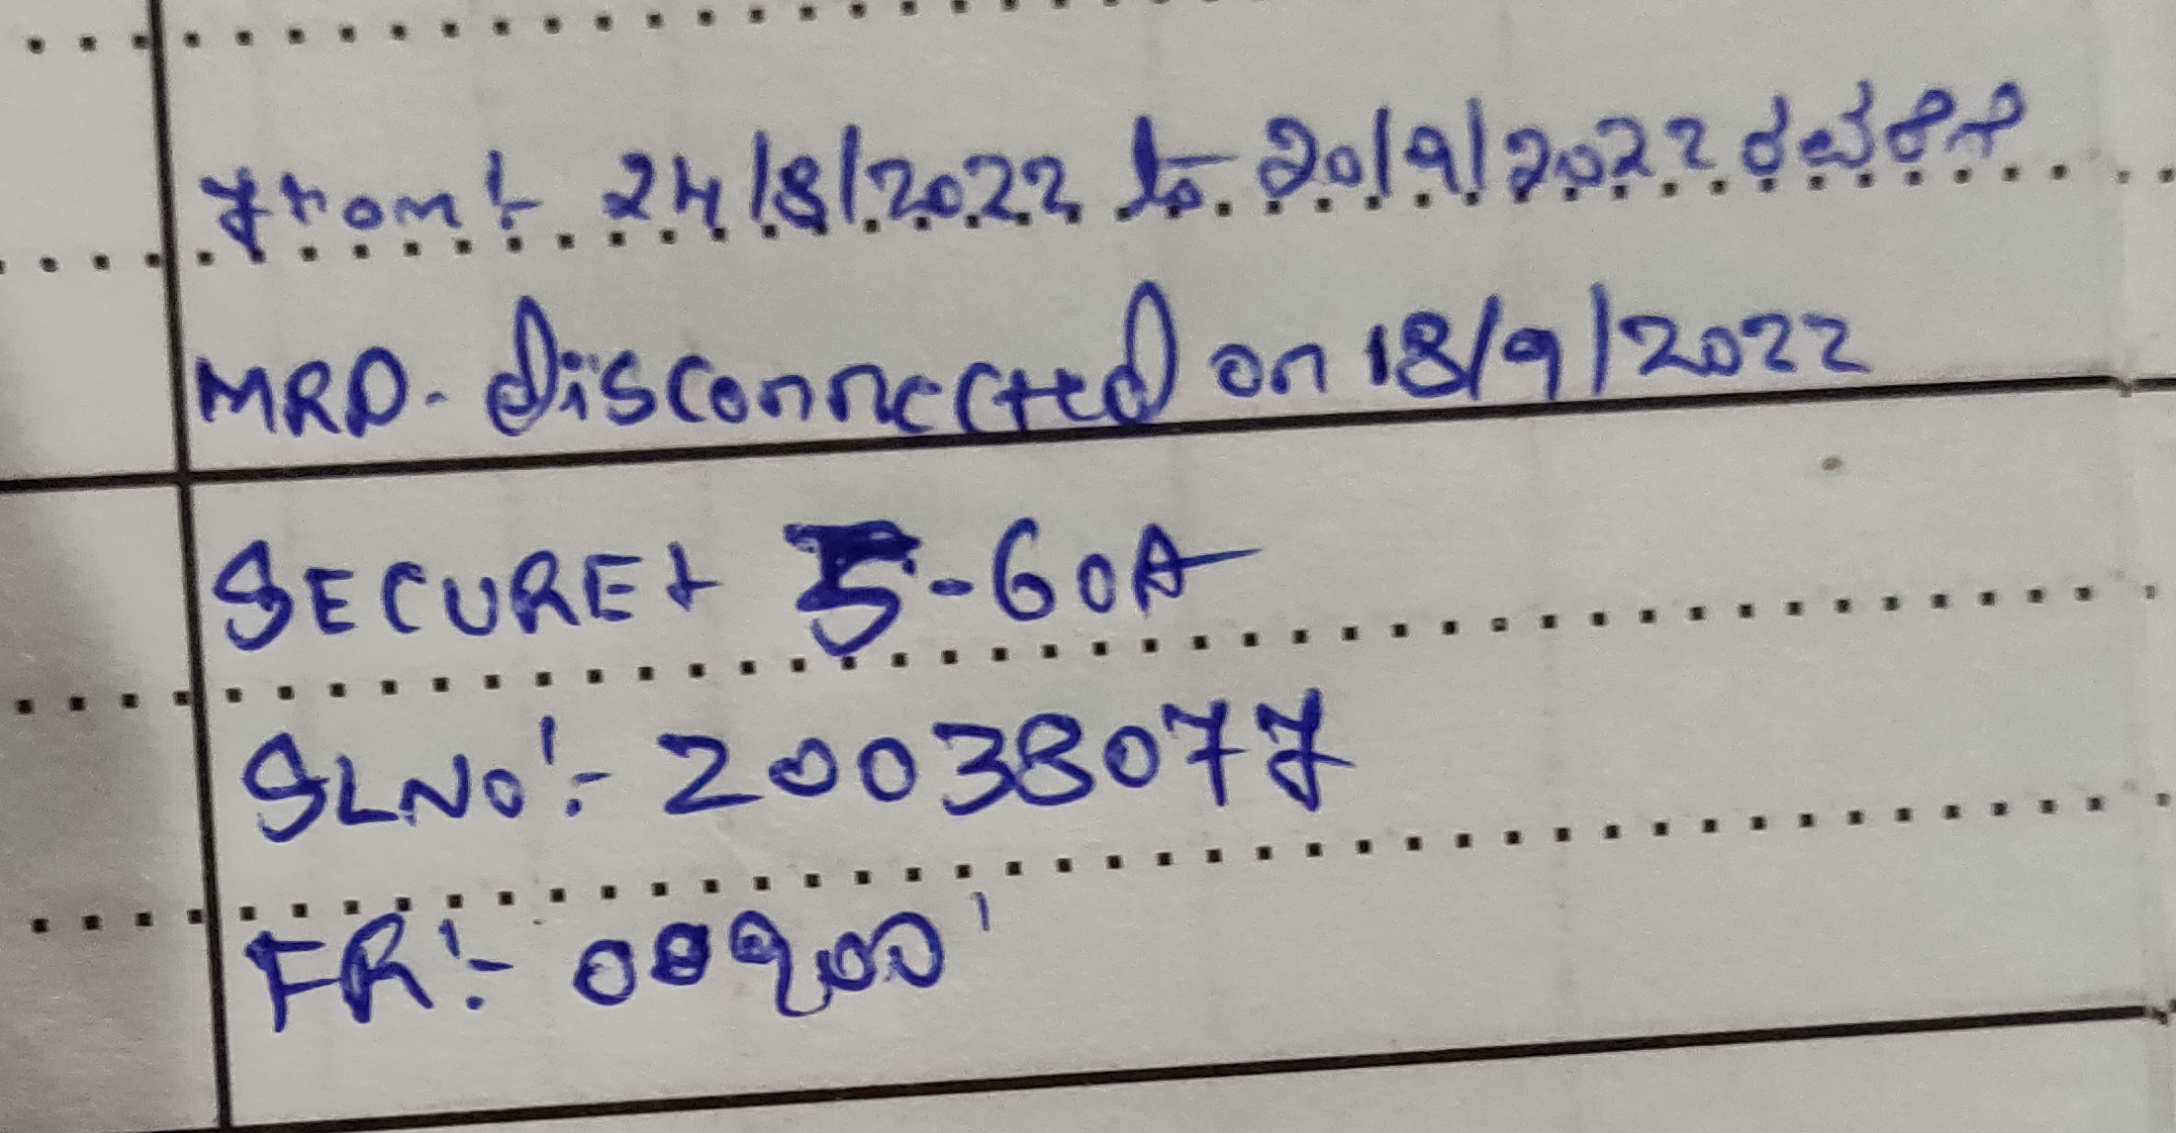 From:- 24/8/2022 to 20/9/2022 ರವರೆಗೆ
MRD. disconnected on 18/9/2022
SECURE+ 5-60A
SLNO:- 20038077
FR:- 00900